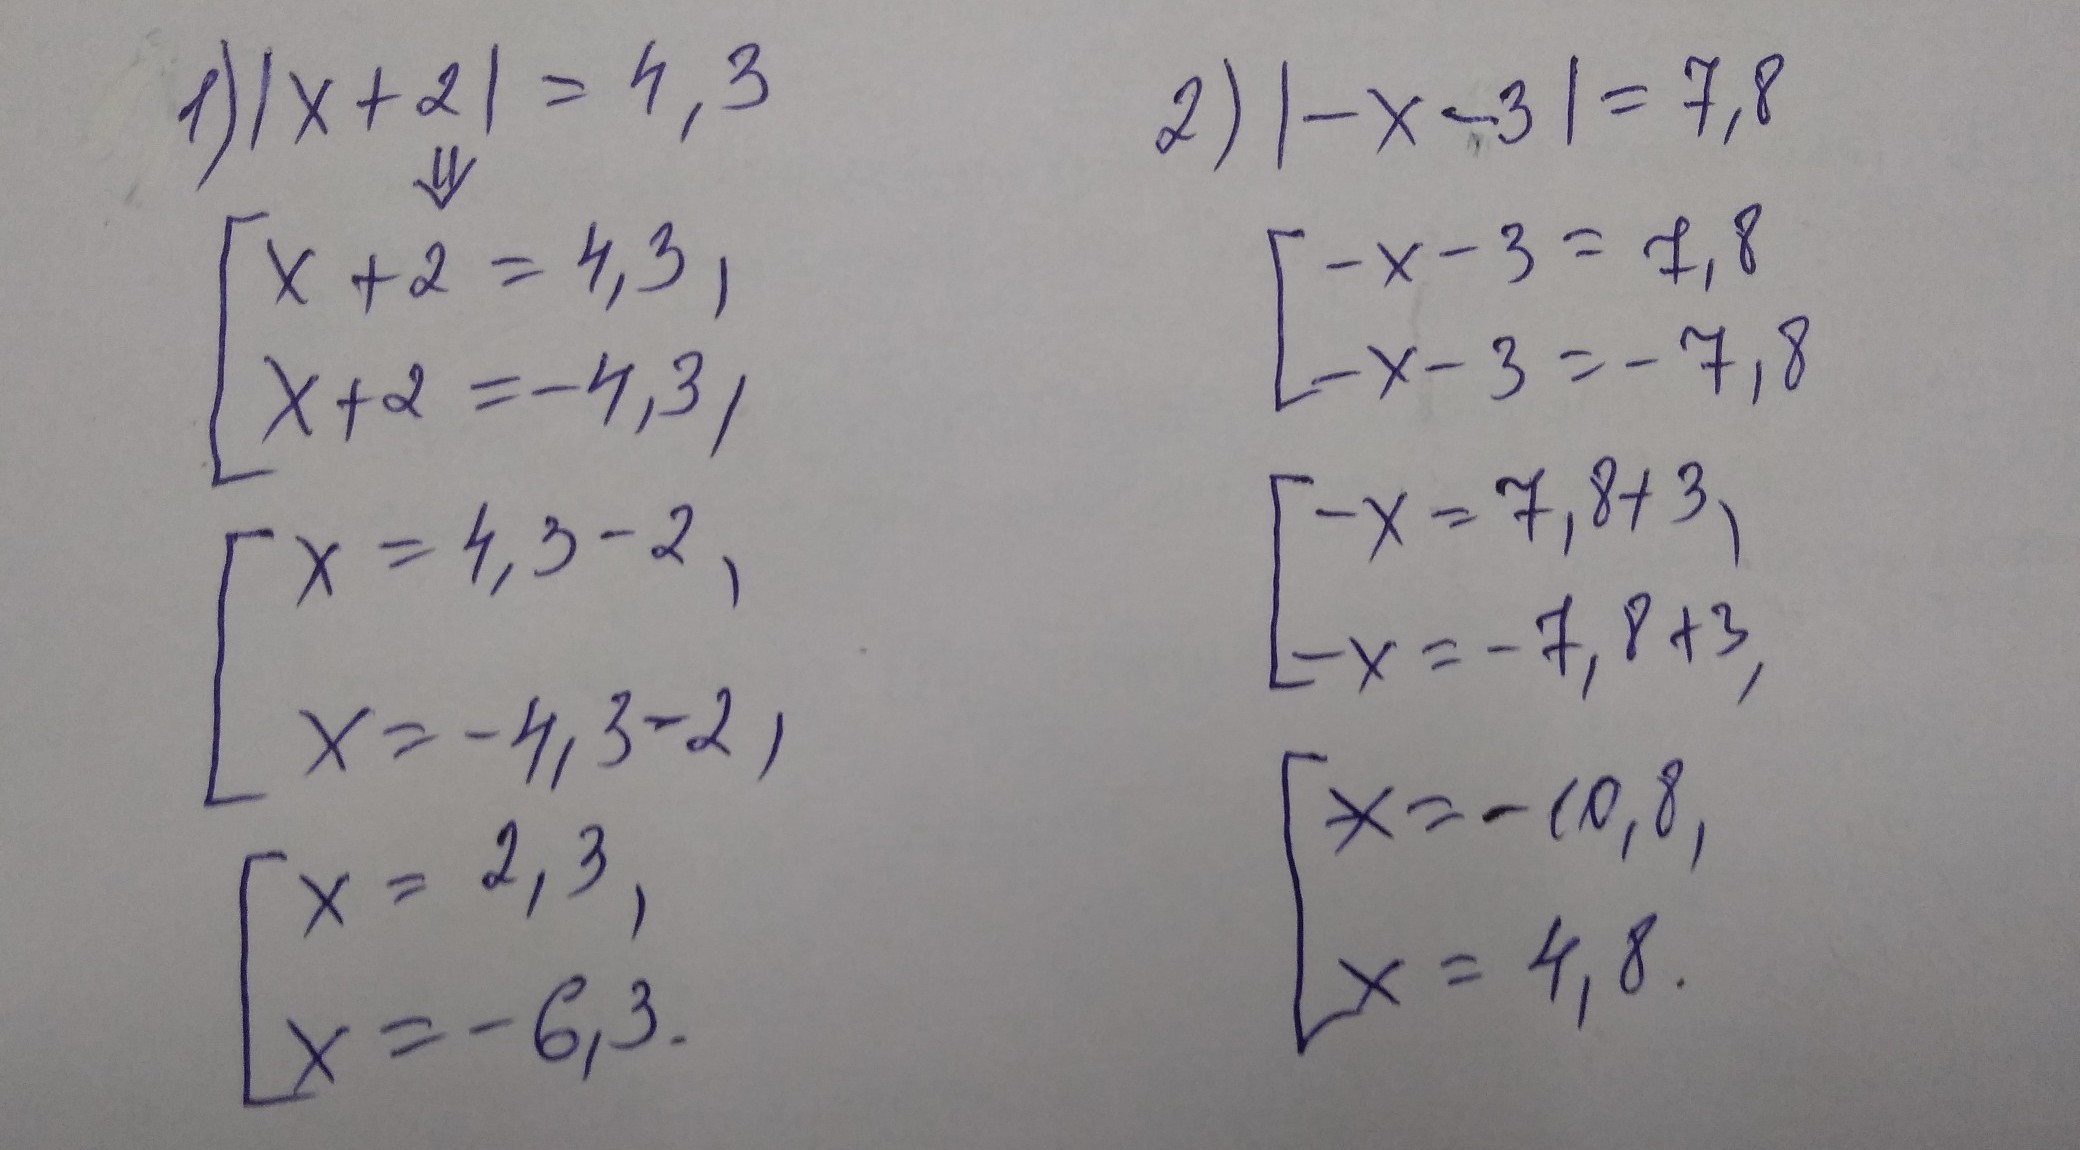 1) |x+2| = 4,3
⇓
x+2 = 4,3,
x+2 = -4,3,
x = 4,3-2,
x = -4,3-2,
x = 2,3,
x = -6,3.
2) |-x-3| = 7,8
-x-3 = 7,8
-x-3 = -7,8
-x = 7,8+3,
-x = -7,8+3,
x = -10,8,
x = 4,8.